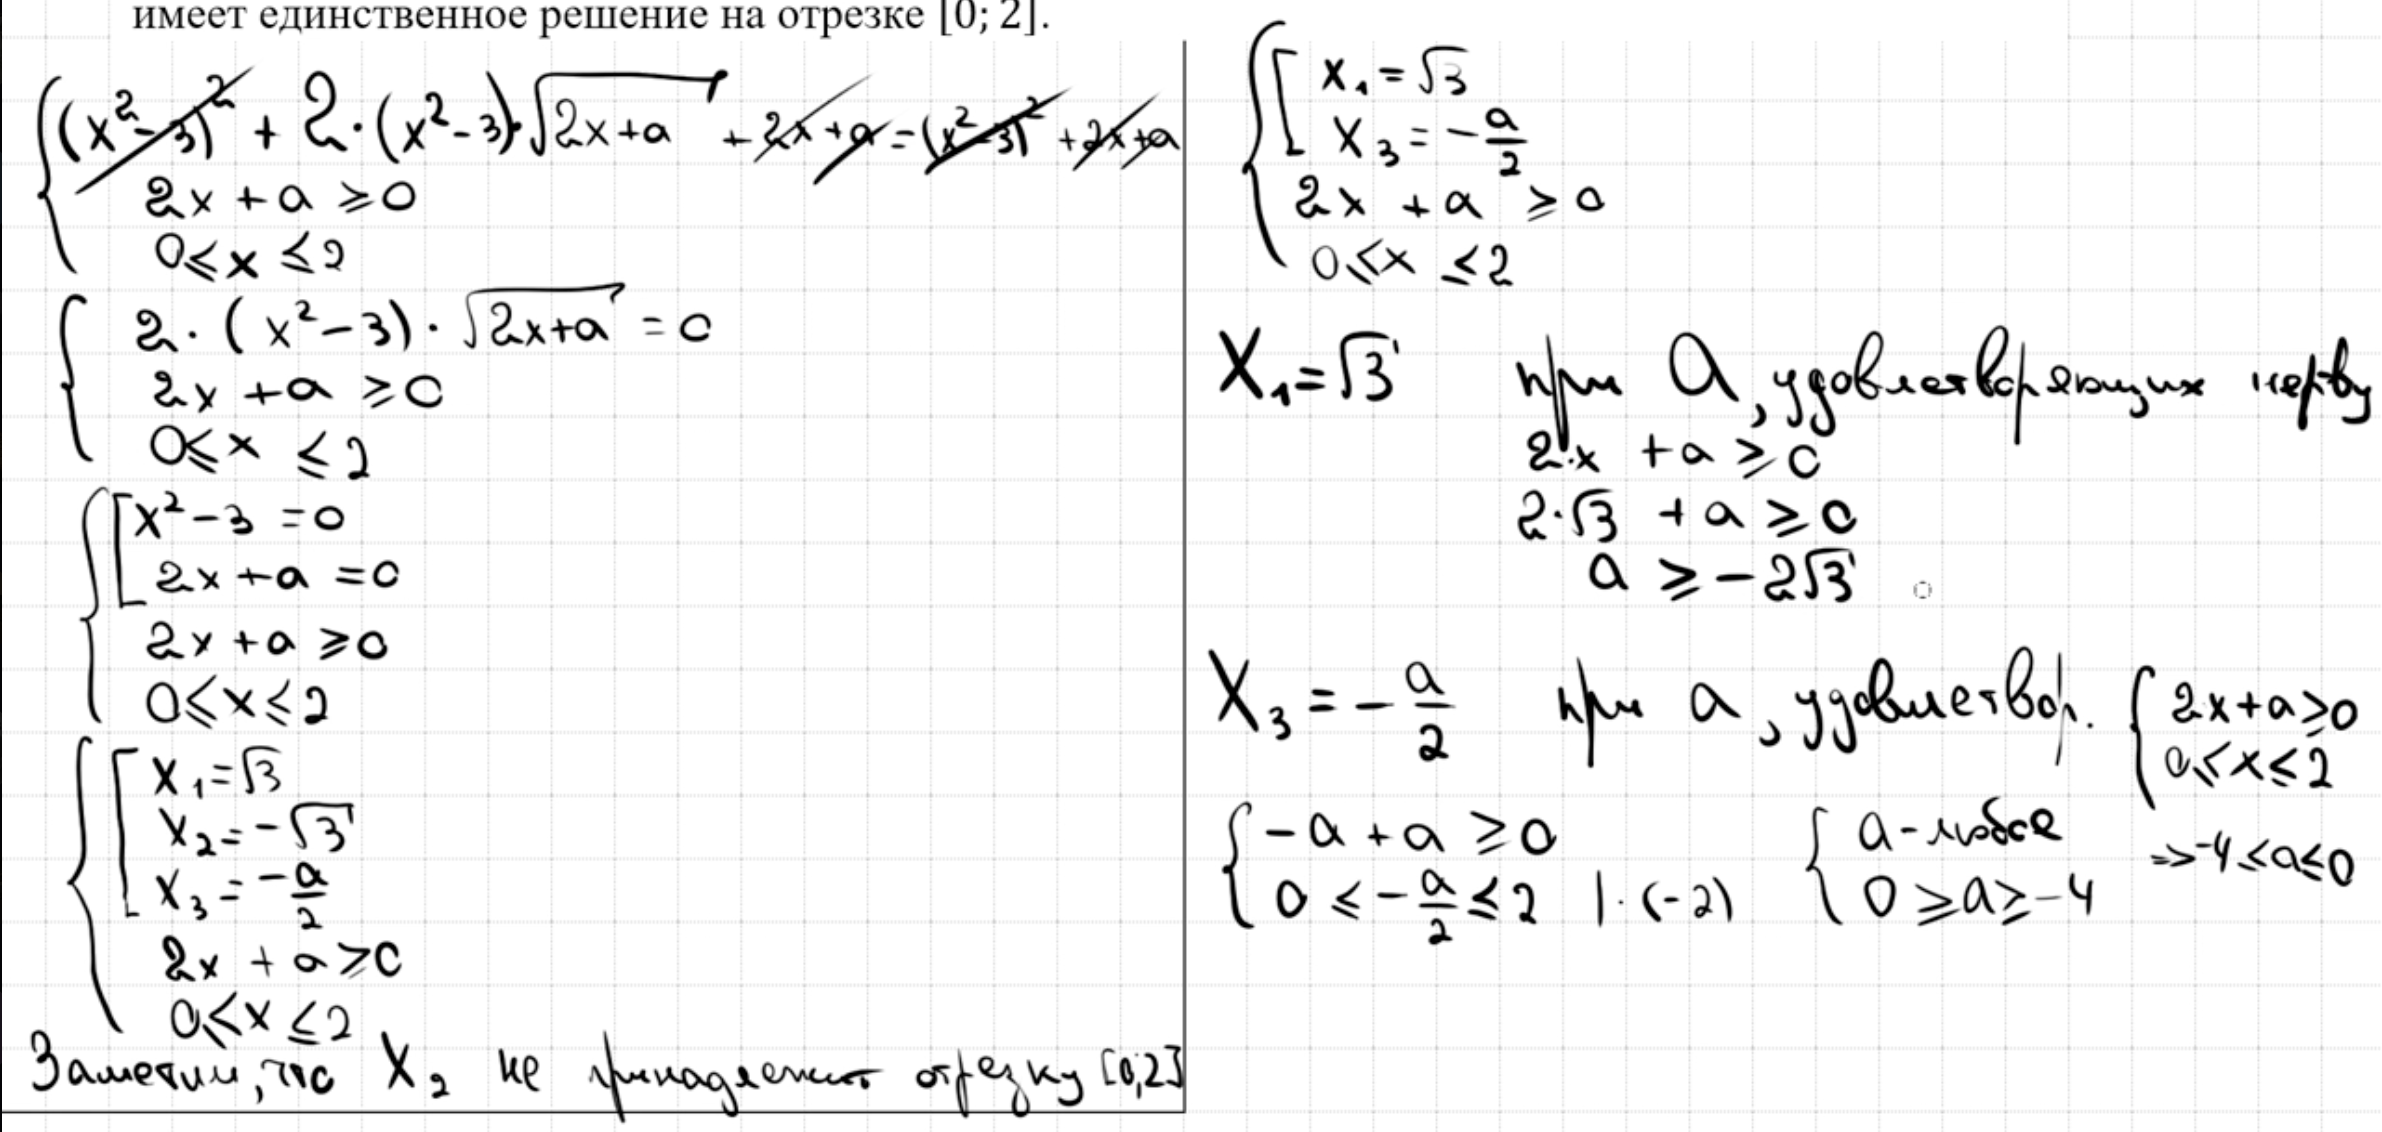 имеет единственное решение на отрезке [0; 2].
(x²-3)² + 2·(x²-3)·√2x+a + 2x+a = (x²-3)² + 2x+a
2x + a ≥ 0
0 ≤ x ≤ 2
2·(x²-3)·√2x+a = 0
2x + a ≥ 0
0 ≤ x ≤ 2
x²-3 = 0
2x + a = 0
2x + a ≥ 0
0 ≤ x ≤ 2
x₁ = √3
x₂ = -√3
x₃ = -a/2
2x + a ≥ 0
0 ≤ x ≤ 2
Заметим, что x₂ не принадлежит отрезку [0;2]
x₁ = √3
x₃ = -a/2
2x + a ≥ 0
0 ≤ x ≤ 2
x₁ = √3 при a, удовлетворяющих нерву
2·x + a ≥ 0
2·√3 + a ≥ 0
a ≥ -2√3
x₃ = -a/2 при a, удовлетвор. { 2x+a ≥ 0
0 ≤ x ≤ 2
{ -a + a ≥ 0 { a - любое
0 ≤ -a/2 ≤ 2 | ·(-2) 0 ≥ a ≥ -4 => -4 ≤ a ≤ 0